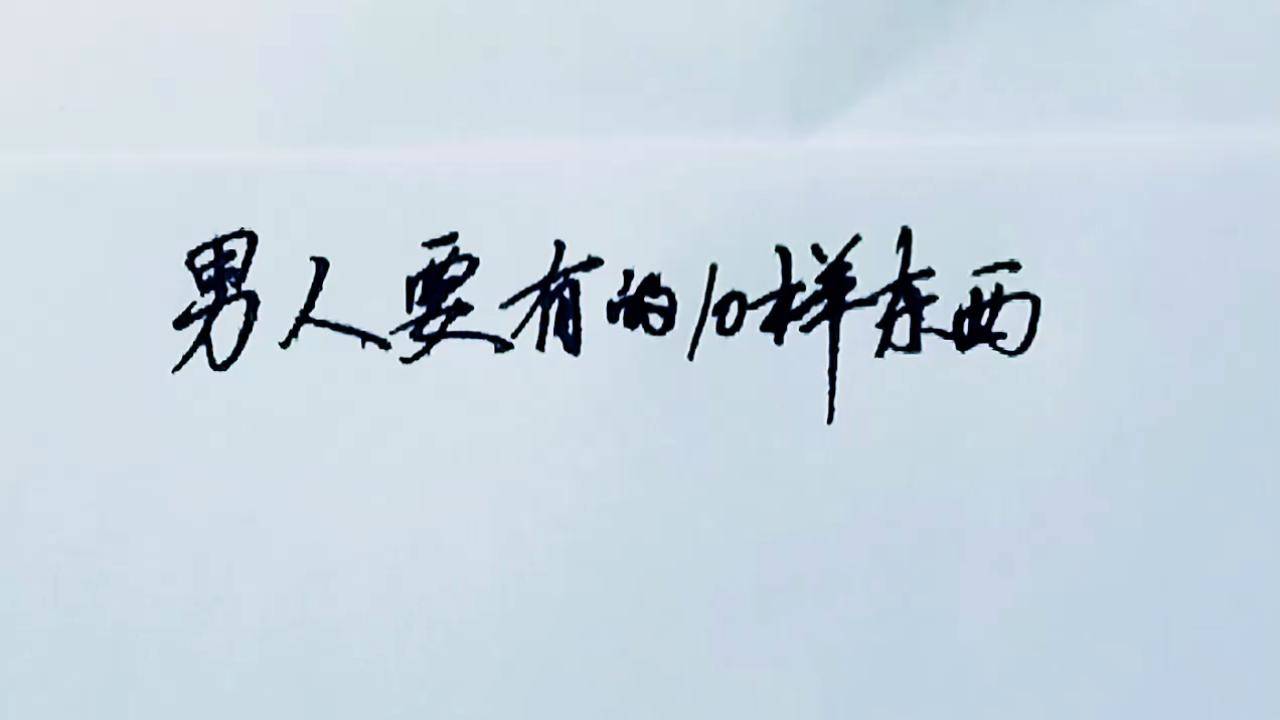 男人要有的10样东西